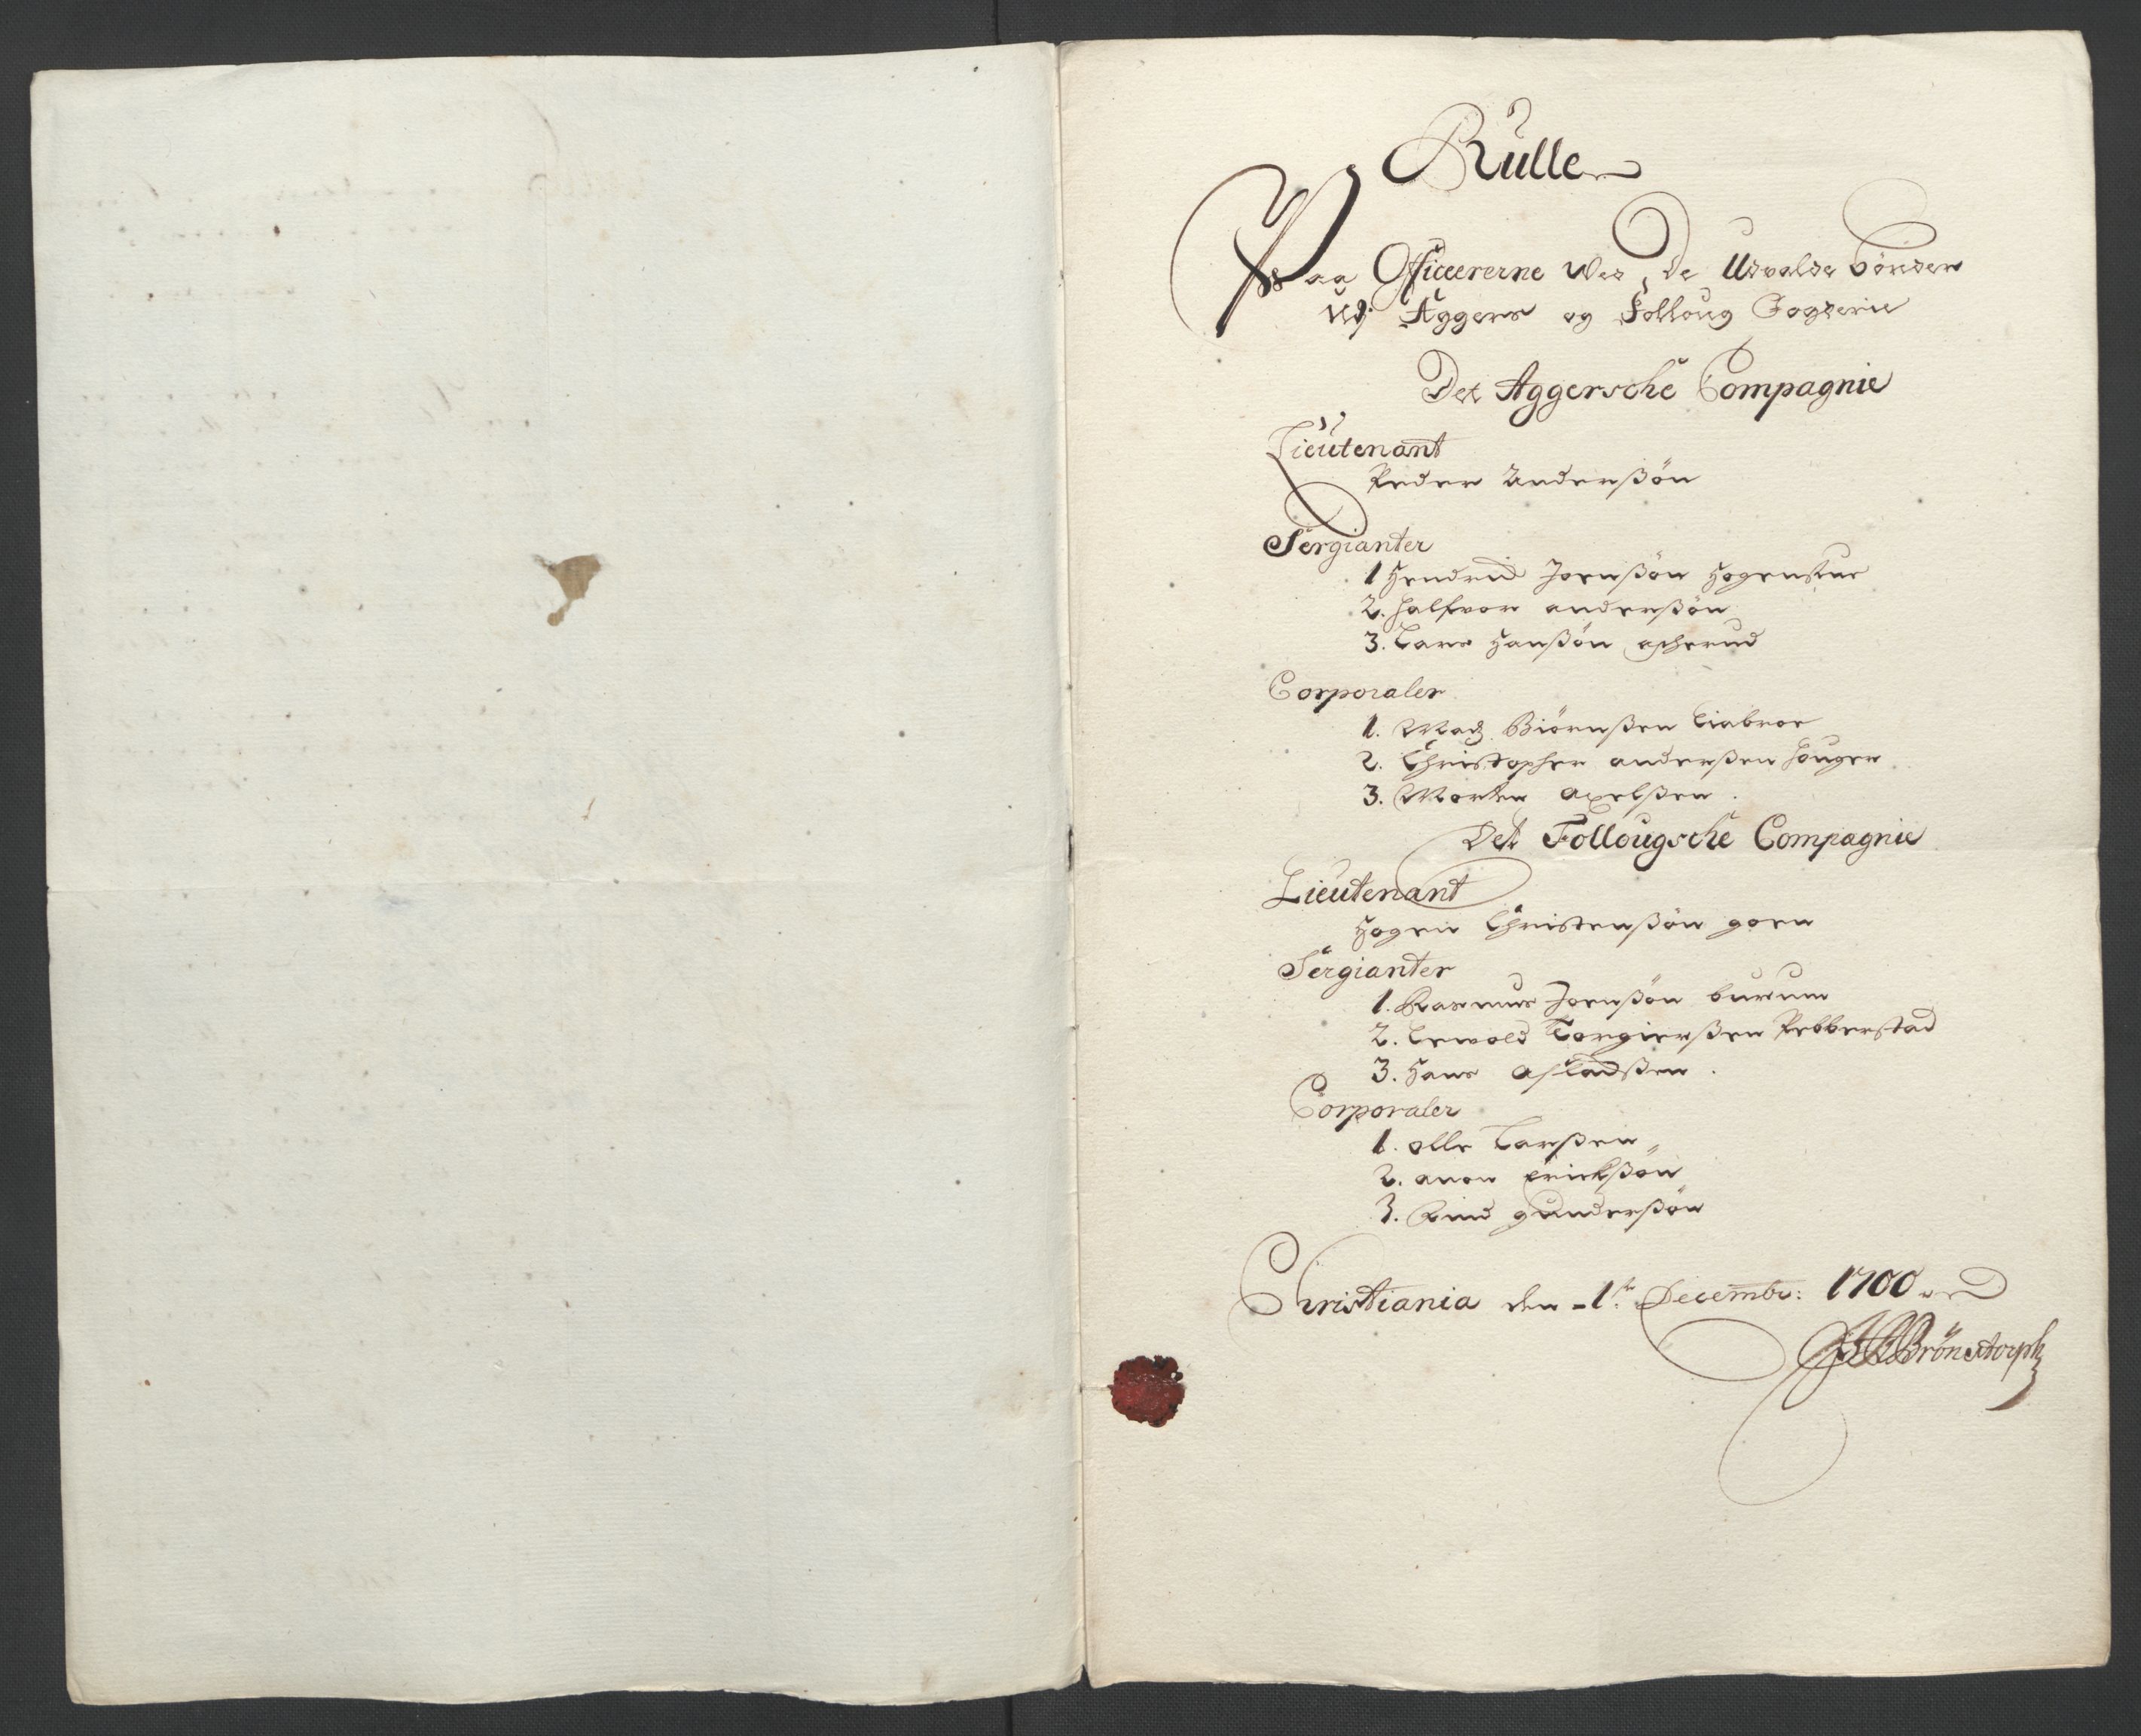 Rulle
Paa Officererne Wed De Udvalde bönder
Udj Aggers og Folloug Fogderie
Det Aggersche Compagnie
Lieutenant
Peder Anderßön
Sergianter
1 Hendrich Joenßön Hogenstue
2. Halfvor anderßön
3. Lars Hanßön
Corporaler
1. Madz Biörnßen Liabroe
2. Christopher anderßen Houger
3. Morten Axelßen
Det Follougsche Compagnie
Lieutenant
Hogen Christenßön goen
Sergianter
1. Rasmus Joenßön burum
2. Torgierßen Pebberstad
3. Hans Asladßen
Corporaler
1. Olle Larßen
2. Erichßön
3. gunderßön
Christiania den 1te Decembr: 1700
Brönstorph